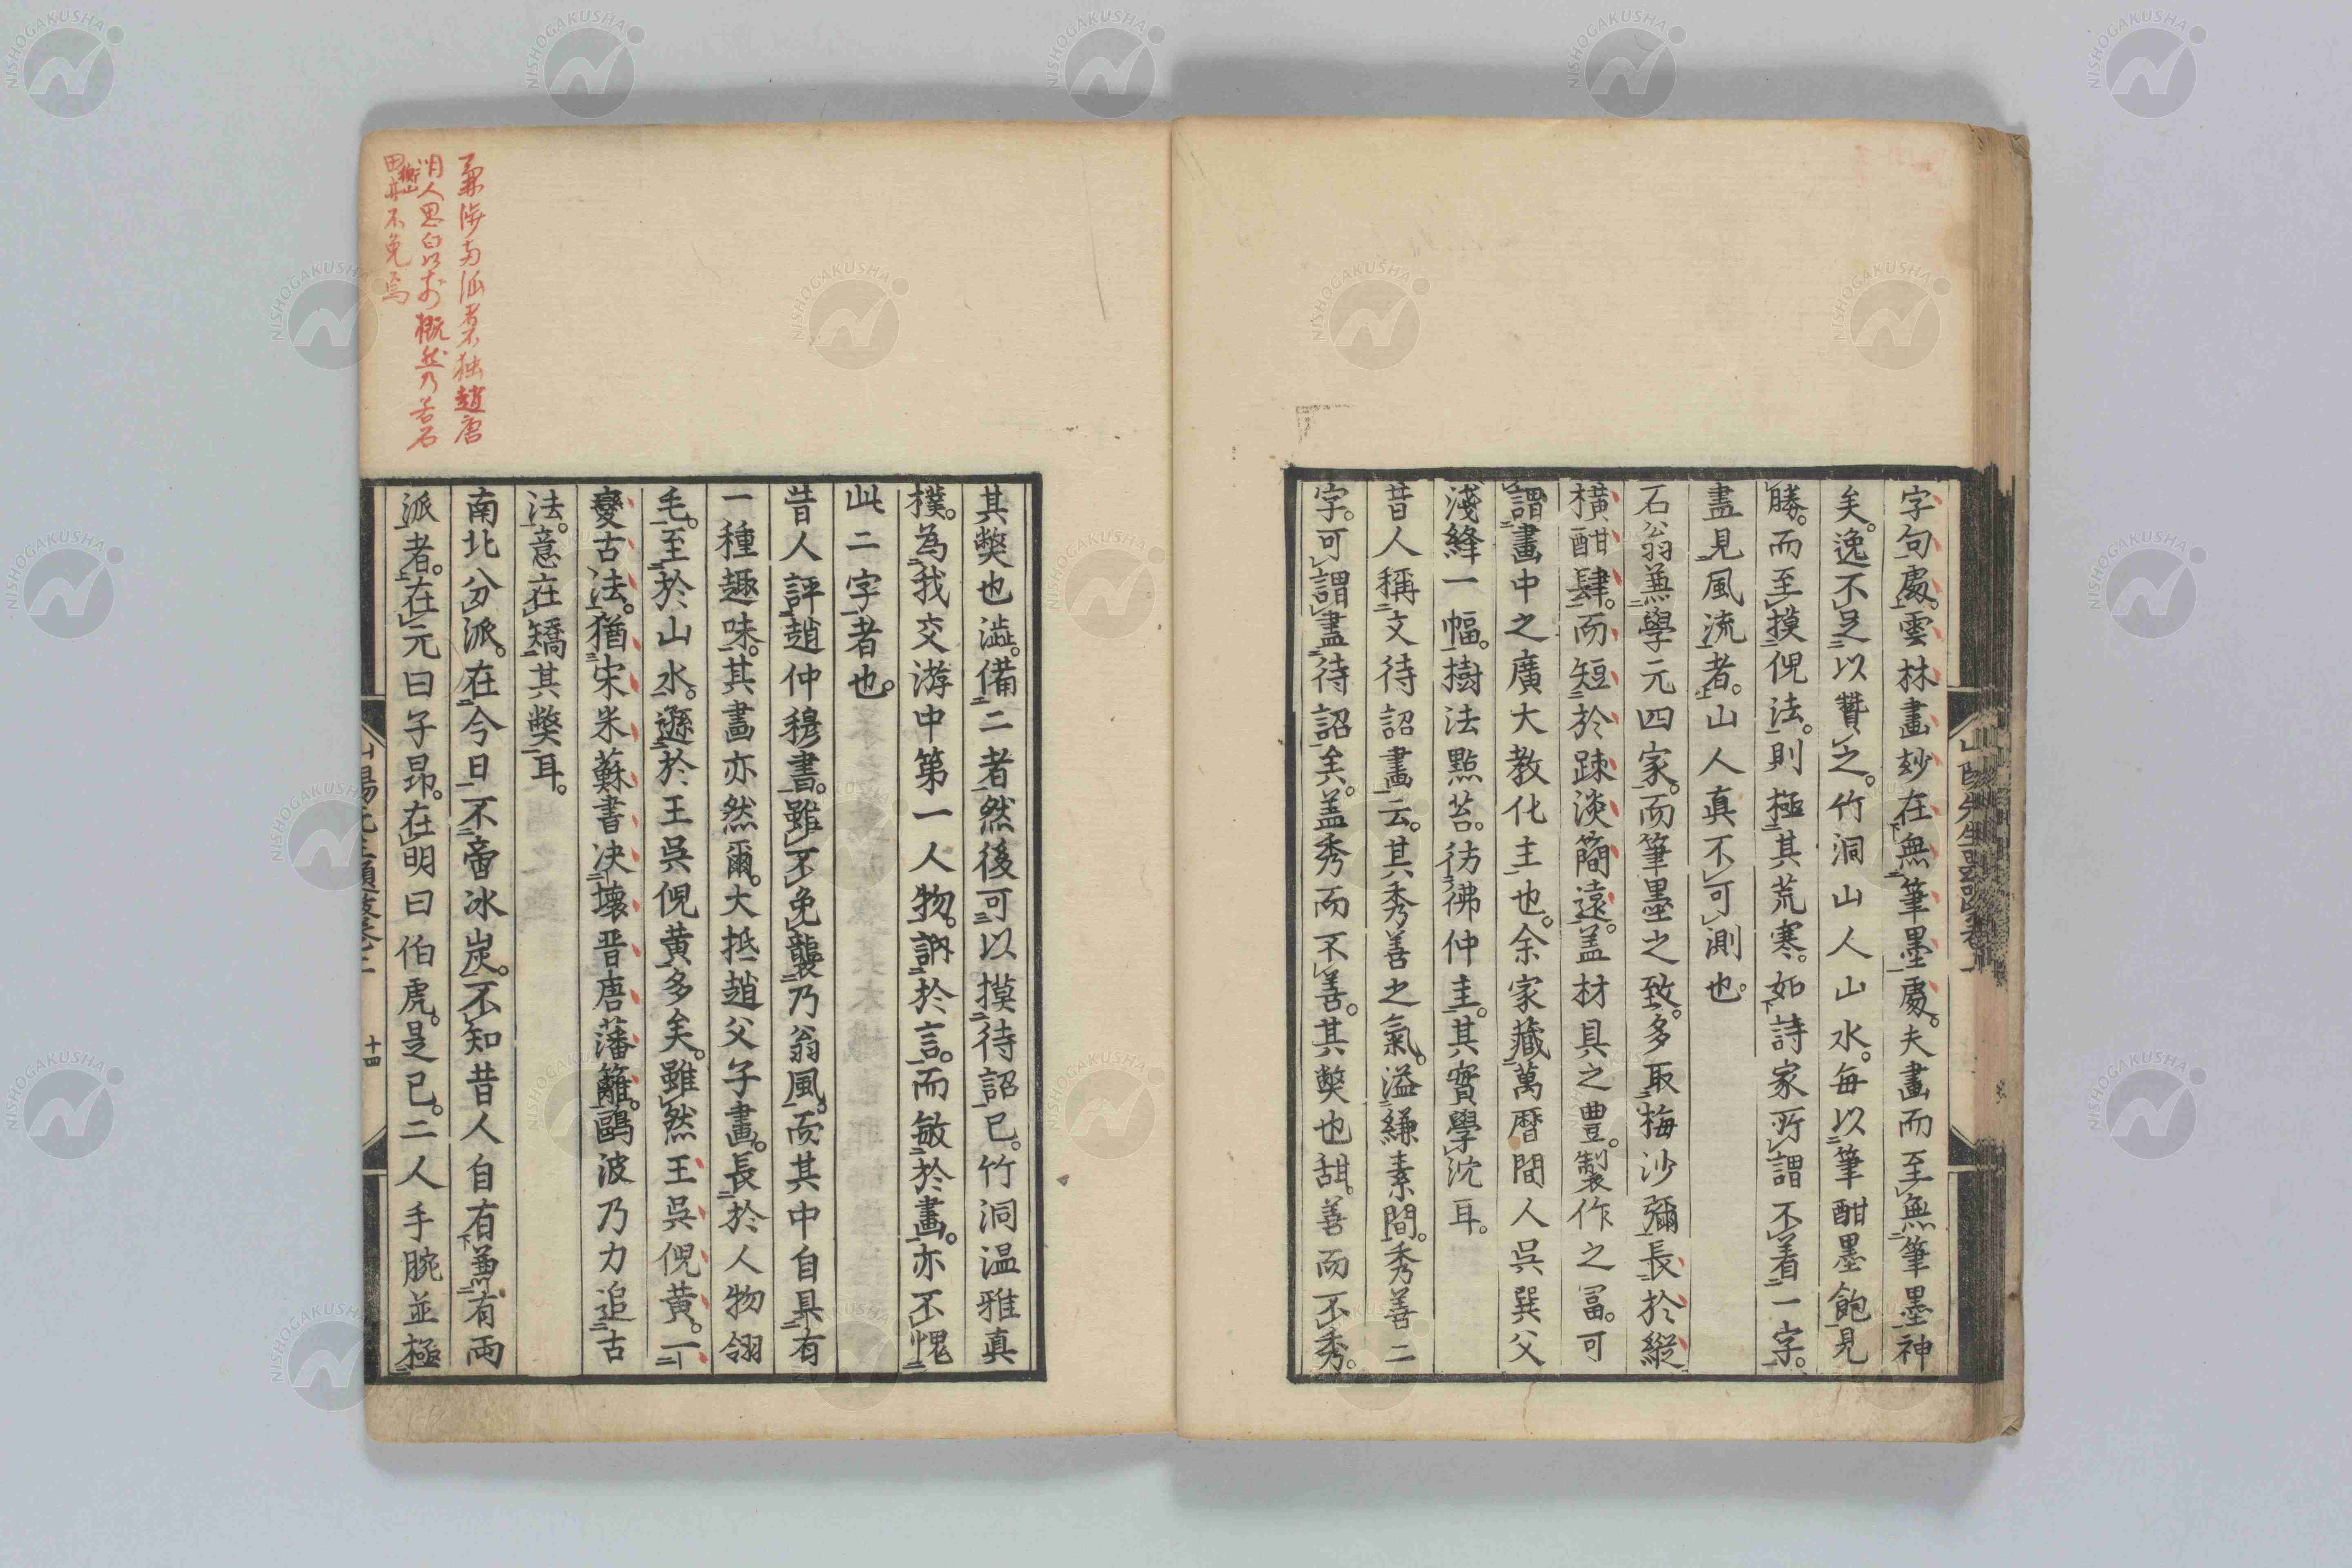 字句處。雲林畫玅在無筆墨處。夫畫而至無筆墨神
矣。逸不足以贊之。竹洞山人山水。每以筆酣墨飽見
勝。而至摸倪法。則極其荒寒。如詩家所謂不着一字。
盡見風流者。山人真不可測也。
石翁兼學元四家。而筆墨之致。多取梅沙彌長於縱
横酣肆。而短於疎淡簡遠。盖材具之豊。製作之冨。可
謂畫中之廣大教化主也。余家藏萬曆間人吳巽父
淺絳一幅。樹法點苔。彷彿仲圭。其實學沈耳。
昔人稱文待詔畫云。其秀善之氣。溢縑素間。秀善二
字。可謂盡待詔矣。盖秀而不善。其獘也甜。善而不秀。
其獘也澁。備二者然後可以摸待詔已。竹洞温雅真
樸。為我交游中第一人物。訥於言。而敏於畫。亦不愧
此二字者也。
昔人評趙仲穆書。雖不免襲乃翁風。而其中自具有
一種趣味。其畫亦然爾。大抵趙父子畫。長於人物翎
毛。至於山水。遜於王吳倪黄多矣。雖然王吳倪黄。一
變古法。猶宋米蘇書决壊晋唐藩籬。鷗波乃力追古
法。意在矯其獘耳。
南北分派。在今日不啻冰炭。不知昔人自有兼有兩
派者。在元曰子昂。在明曰伯虎。是已。二人手腕並極
山陽先生題跋卷上
十四
兼濟南派者不独趙唐
明人思白以前概然乃若石
田衡山亦不免焉
NISHOGAKUSHA